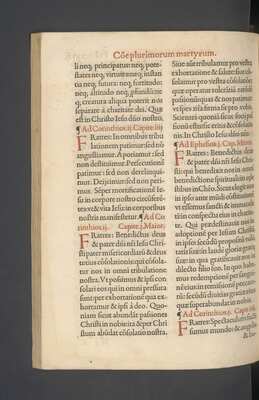 Cōe plurimorum martyrum.
li neq; principatus neq; pote-
states neq; virtutes neq; instan
tia neq; futura: neq; fortitudo:
neq; altitudo neq; ꝓfundū: ne
q; creatura alia poterit nos
separare a charitate dei. Que
est in Christo Iesu dño nostro.
Ad Corinthios.ij. Capite.iiij
FRatres: In omnibus tribu
lationem patimur: sed nō
angustiamur. Aporiamur: sed
non destituimur. Persecutionē
patimur: sed non derelinqui-
mur. Deijcimur: sed non peri-
mus. Semper mortificationē Ie-
su in corpore nostro circūferē-
tes: vt & vita Iesu in corporibus
nostris manifestetur. Ad Co
rinthios.ij. Capite.j. Maior.
FRatres: Benedictus deus
& pater dñi nr̄i Iesu Chri
sti: pater misericordiarū & deus
totius cōsolationis: qui cōsolat̄
nos in omni tribulatione
nostra. Vt possimus & ipsi con
solari eos qui in omni pressura
sunt: per exhortationē qua ex-
hortamur & ipsi a deo. Quo-
niam sicut abundāt passiones
Christi in nobis: ita & per Chri
stum abūdat cōsolatio nostra.
Siue aūt tribulamur pro vestra
exhortatione & salute: siue cō-
solamur pro vestra cōsolatione:
que operatur tolerātiā earūdē
passionū: quas & nos patimur:
vt spes nostra firma sit pro vobis.
Scientes quoniā sicut socij pas
sionū estis: sic eritis & cōsolatio
nis. In Christo Iesu dño nr̄o.
Ad Ephesios.j. Cap. Minor.
FRatres: Benedictus deus
& pater dñi nr̄i Iesu Christi
qui benedixit nos in omni
benedictione spirituali in cele-
stibus in Chr̄o. Sicut elegit nos
in ipso ante mundi constitutio
nem: vt essemus sancti & imma
culati in conspectu eius in charita-
te. Qui predestinauit nos in
adoptionem filiorum per Iesum
Christum in ipsum:
secūdū propositū volu
tatis sue: in laudē glorie gratie
sue: in qua gratificauit nos in
dilecto filio suo. In quo habe-
mus redemptionem per sanguinē
eius: in remissionē peccato-
rū: secūdū diuitias gratie eius:
que superabundauit in nobis.
Ad Corinthios.j. Capite
FRatres: Spectaculum facti
sumus mundo & angelis